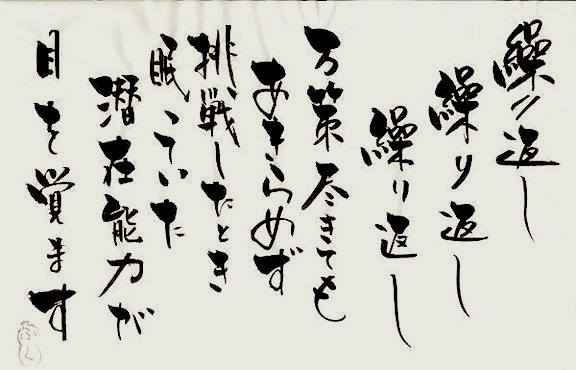 繰り返し
繰り返し
繰り返し
万策尽きても
あきらめず
挑戦したとき
眠っていた
潜在能力が
目を覚ます
ふく